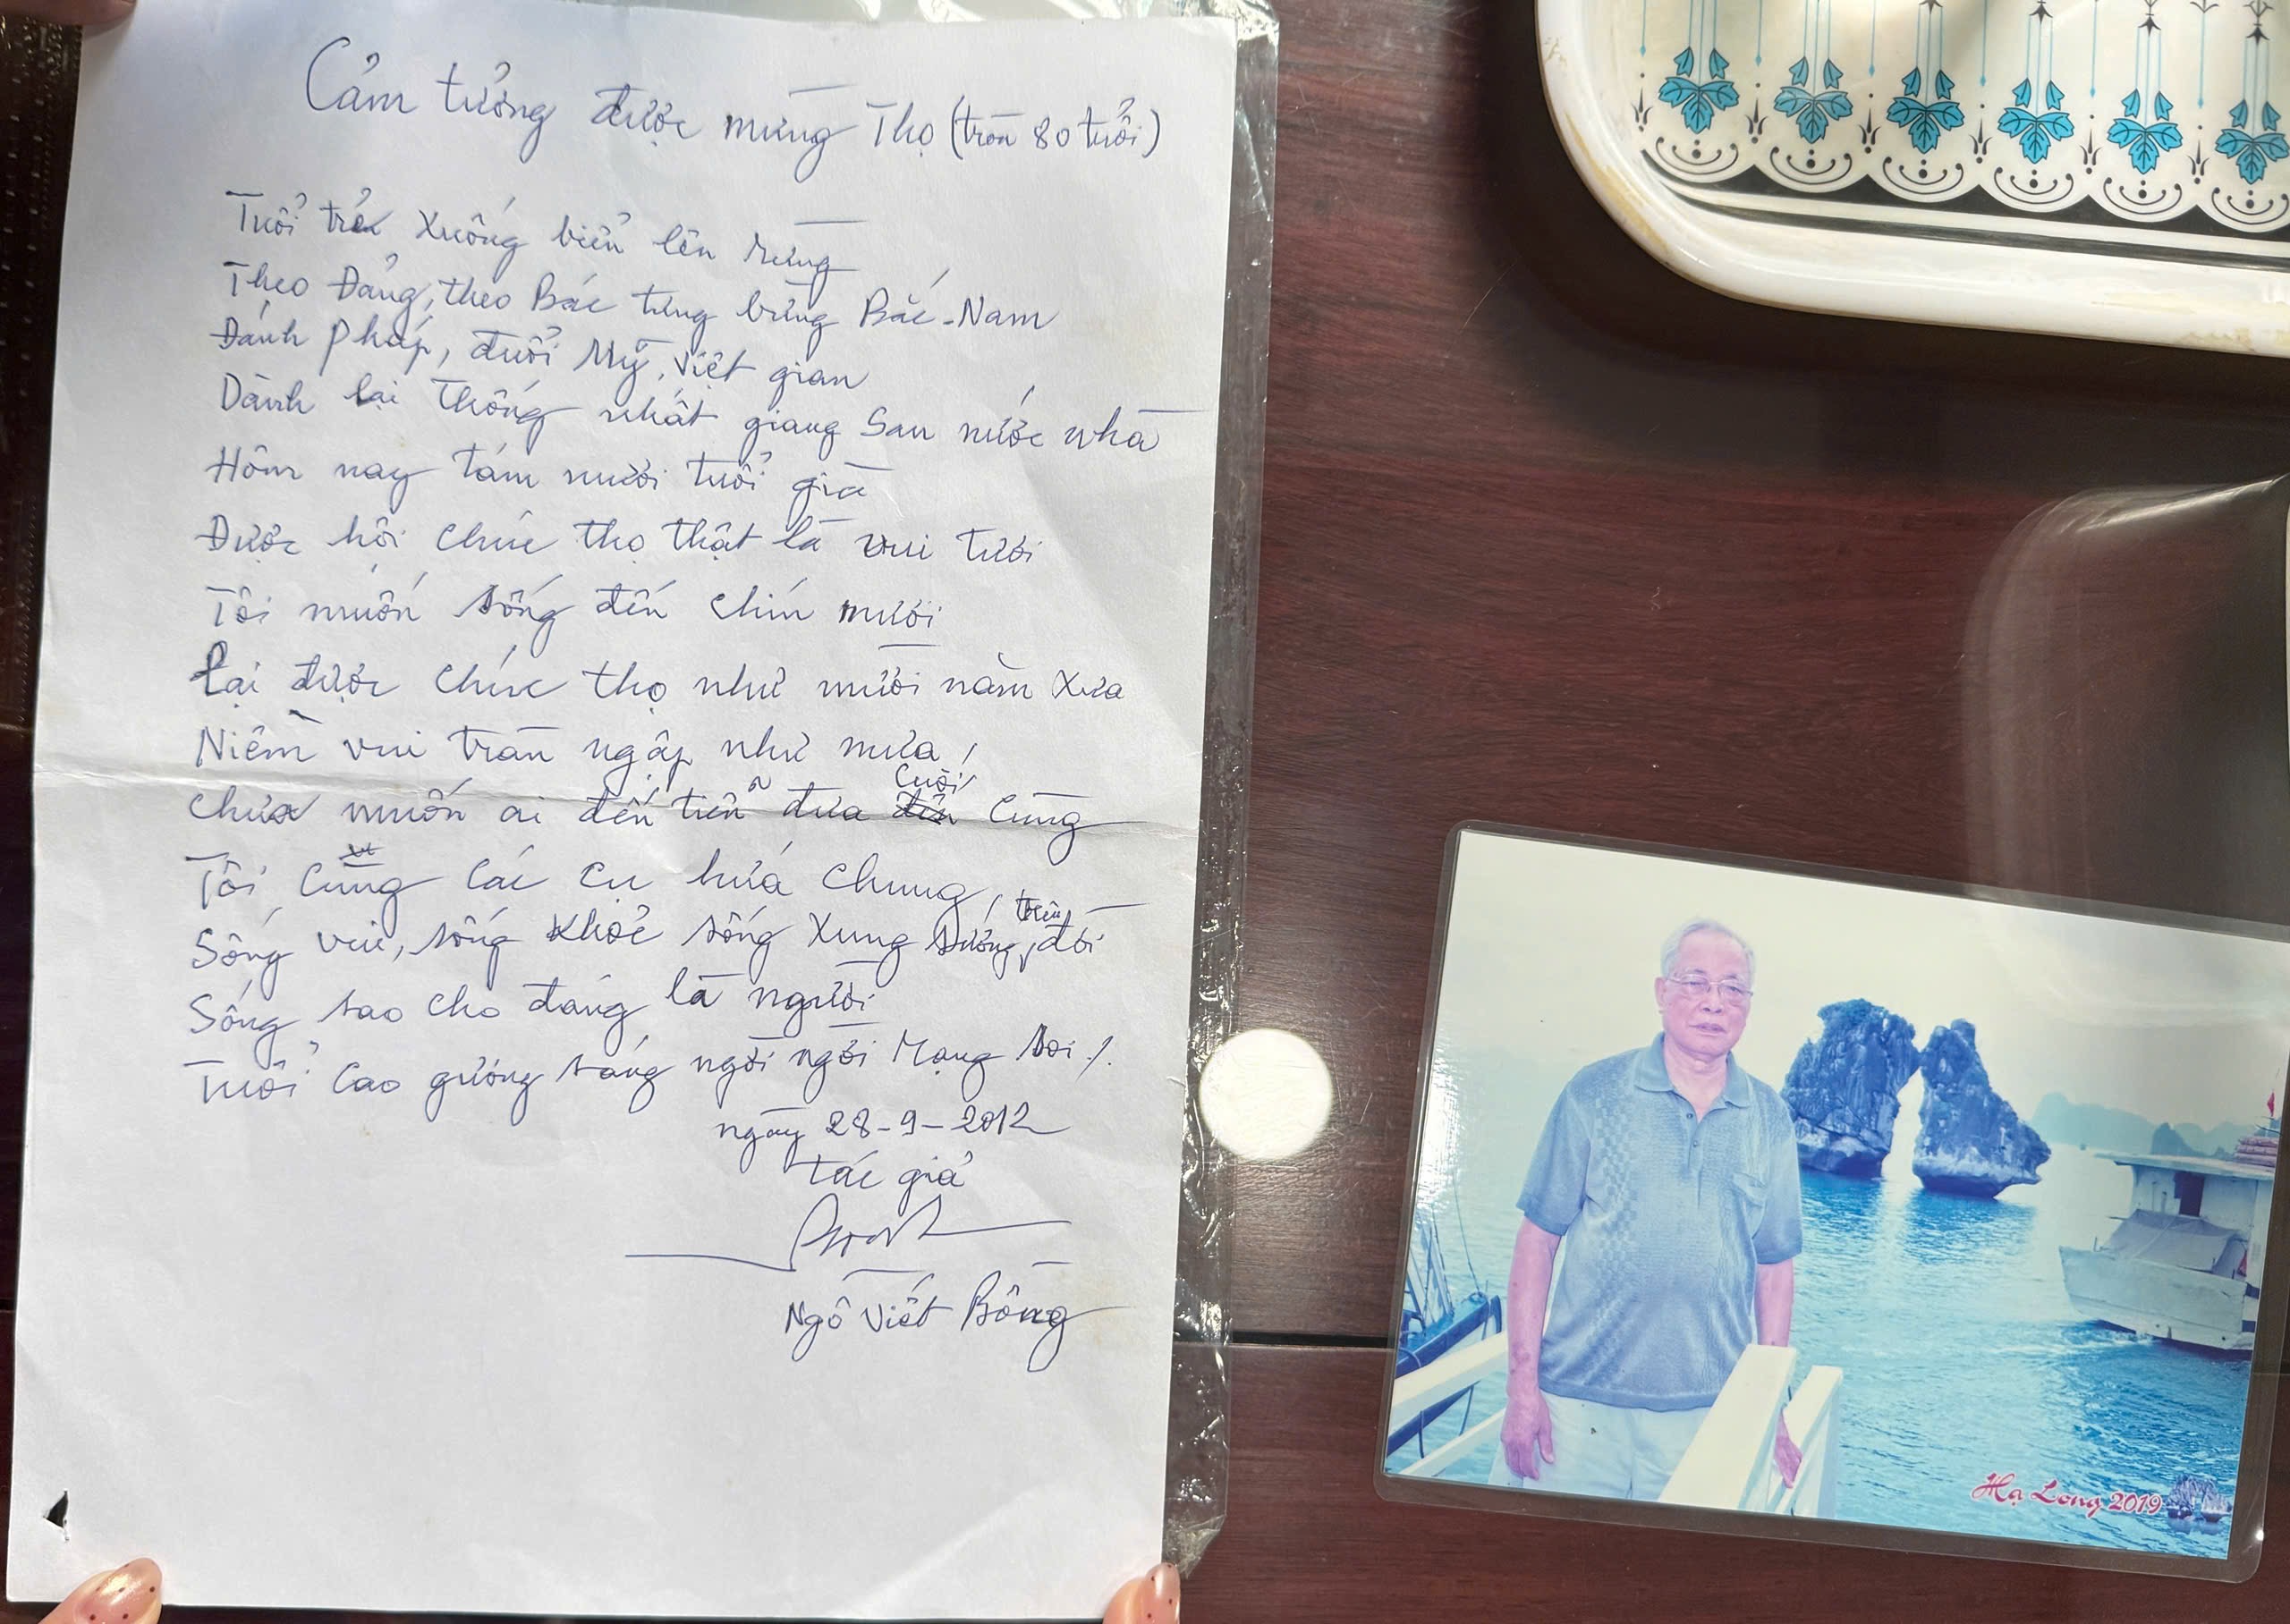 Cảm tưởng được mừng Thọ (tròn 80 tuổi)
Tuổi trẻ xuống biển lên rừng
Theo Đảng, theo Bác từng bừng Bắc-Nam
Đánh Pháp, đuổi Mỹ, Việt gian
Dành lại thống nhất giang san nước nhà
Hôm nay tám mười tuổi già
Được hội chúc thọ thật là vui tươi
Tôi muốn sống đến chín mười
Lại được chúc thọ như mười năm xưa
Niềm vui tràn ngập như mưa
Chưa muốn ai đến tiễn đưa cuối cùng
Tôi cùng các cụ hứa chung
Sống vui, sống khoẻ sống xung sướng, trên đời
Sống sao cho đáng là người
Tuổi cao gương sáng ngời ngời rạng soi ./.
ngày 28-9-2012
tác giả
Ngô Viết Bồng
Hạ Long 2019